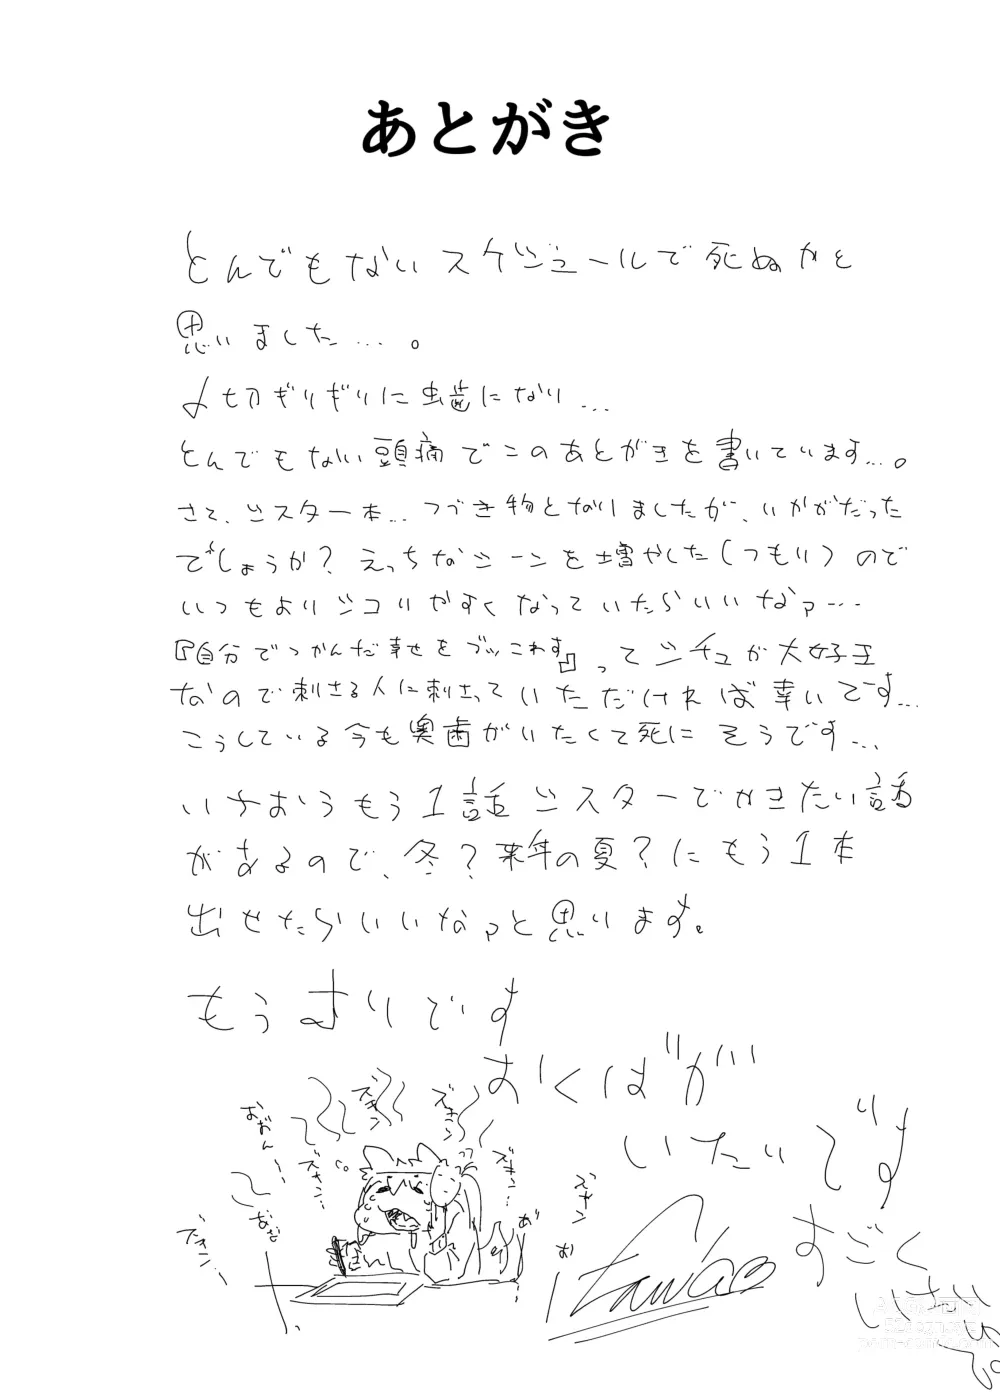 あとがき
とんでもないスケジュールで死ぬかと
思いました…。
〆切ぎりぎりに虫歯になり…
とんでもない頭痛でこのあとがきを書いています…。
さて、シスター本… つづき物となりましたが、いかがだった
でしょうか？ えっちなシーンを増やした(つもり)ので
いつもよりシコりやすくなっていたらいいなァ…
『自分でつかんだ幸せをブッこわす』ってシチュが大好き
なので刺さる人に刺さっていただければ幸いです…
こうしている今も奥歯がいたくて死にそうです…
いちおうもう1話シスターでかきたい話
があるので、冬？来年の夏？にもう1本
出せたらいいなァと思います。
もうよりです
おくばが
いたいです
すごく
いたい
ズキン
ズキン
おおん
ズキン…
ズキン…
おお
ズキン…
ズキン
お
お